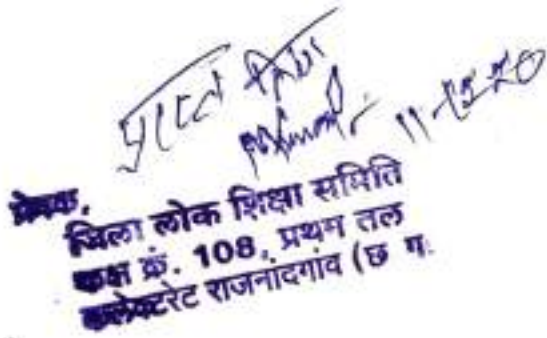 प्राप्त किया
11-12-20
प्रेषक,
जिला लोक शिक्षा समिति
कक्ष क्रं. 108, प्रथम तल
कलेक्टरेट राजनांदगांव (छ ग.